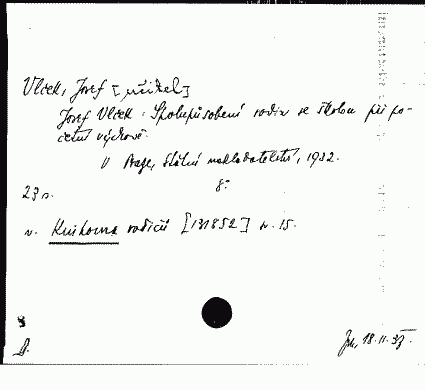 Vlček, Josef [učitel]
Josef Vlček: Spolupůsobení rodin se školou při po-
četní výchově.
V Praze, Státní nakladatelství, 1932.
8°
23 s.
v. Knihovna rodičů [131852] sv. 15.